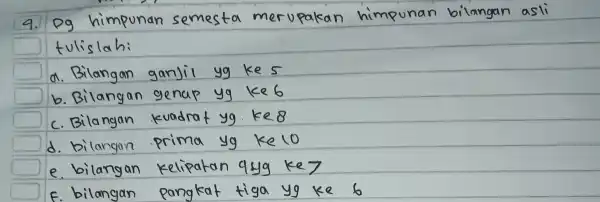 9. Dg himpunan semesta merupakan himpunan bilangan asli
tulislah:
a. Bilangan ganjil yg ke 5
b. Bilangan genap yg ke 6
c. Bilangan kuadrat yg ke 8
d. bilangan prima yg ke 10
e. bilangan kelipatan 9 yg ke 7
f. bilangan pangkat tiga yg ke 6